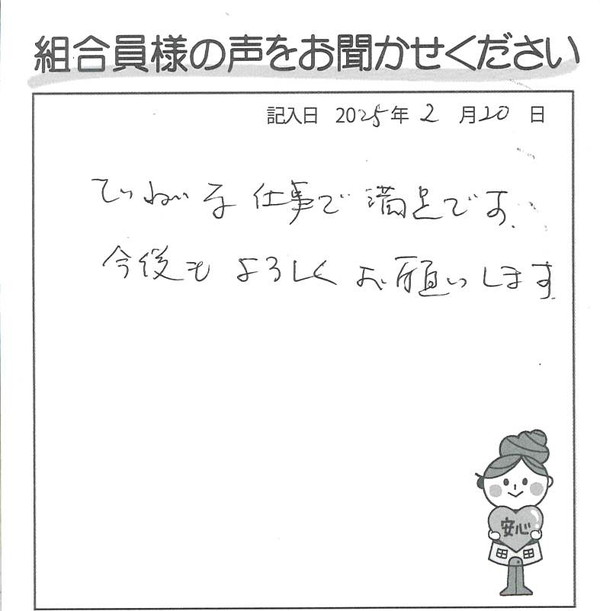 組合員様の声をお聞かせください
記入日 2025年2月20日
ていねいな仕事で満足です.
今後もよろしくお願いします
安心